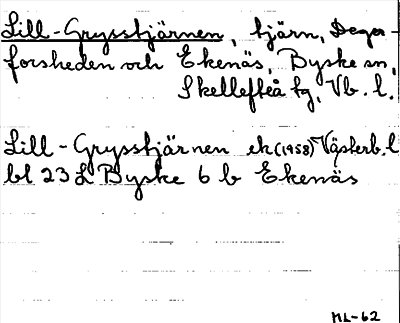 Lill-Grysstjärnen, tjärn, Deger-
forsheden och Ekenäs, Byske sn,
Skellefteå tg, Vb. l.
Lill-Grysstjärnen ek(1958) Västerb. l
bl 23 L Byske 6 b Ekenäs
ML-62